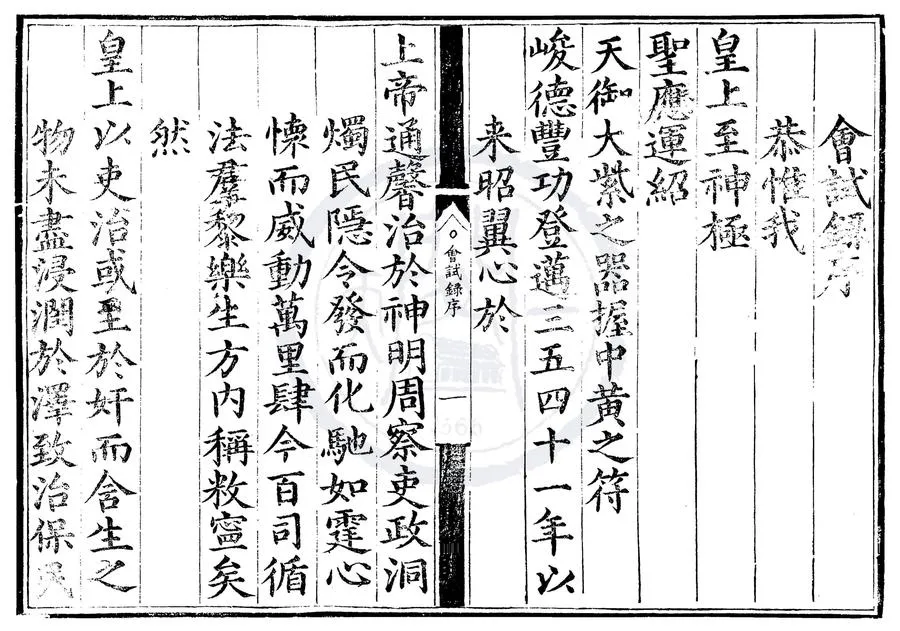 會試録序
恭惟我
皇上至神極
聖應運紹
天御大紫之器握中黄之符
峻德豐功登邁三五四十一年以
来昭翼心於
會試録序
一
上帝通馨治於神明周察吏政洞
燭民隱令發而化馳如霆心
懐而威動萬里肆今百司循
法羣黎樂生方内稱敉寧矣
然
皇上以吏治或至於奸而含生之
物未盡浸潤於澤致治保民